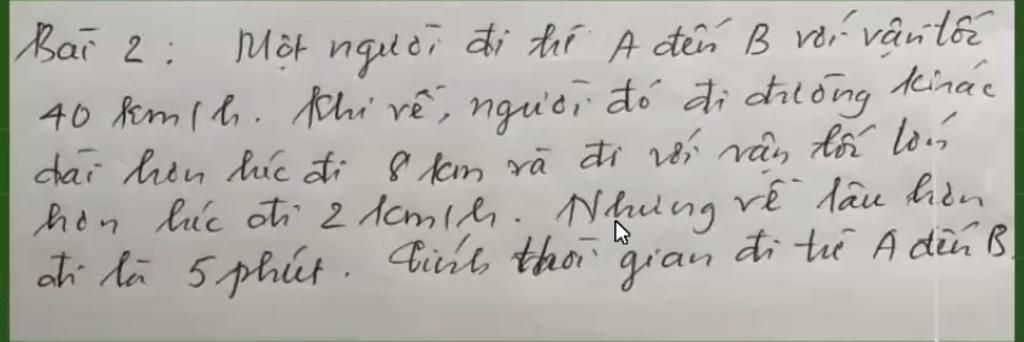 Bài 2 : Một người đi từ A đến B với vận tốc
40 km/h. Khi về, người đó đi đường khác
dài hơn lúc đi 8 km và đi với vận tốc lớn
hơn lúc đi 2 km/h. Nhưng về lâu hơn
đi là 5 phút. Tính thời gian đi từ A đến B.